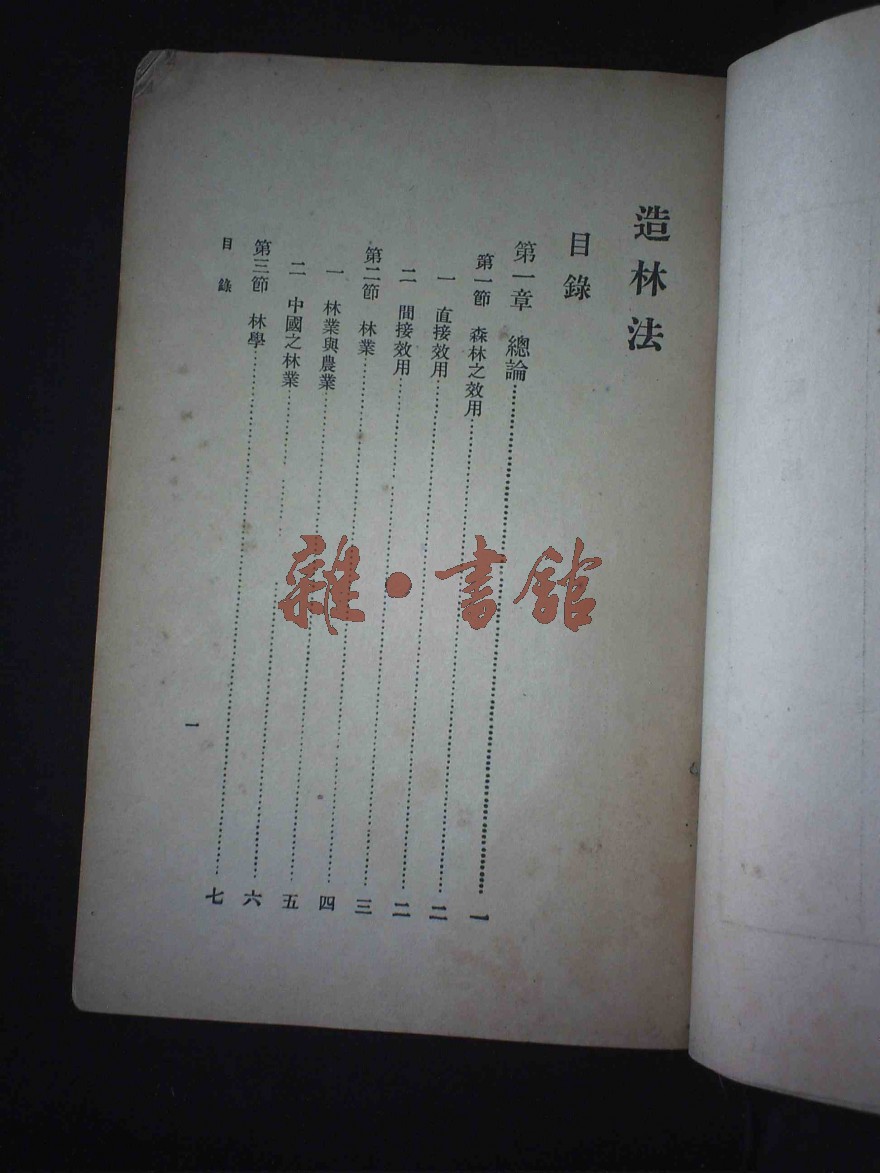 造林法
目錄
第一章 總論……一
第一節 森林之效用……二
一 直接效用……二
二 間接效用……三
第二節 林業……四
一 林業與農業……五
二 中國之林業……六
第三節 林學……七
目錄 一
雜·書館